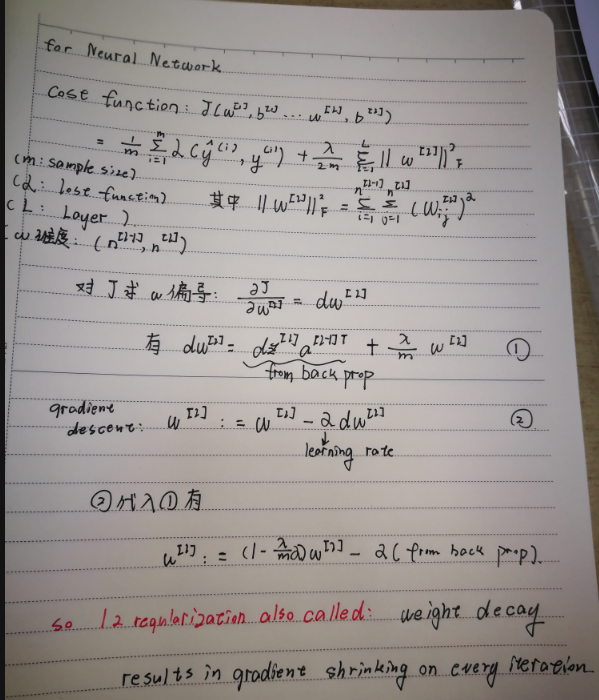 for Neural Network
Cost function: J(w^[1], b^[1] ... w^[L], b^[L])
= 1/m Σ_{i=1}^{m} L(ŷ^(i), y^(i)) + λ/2m Σ_{l=1}^{L} ||w^[l]||²_F
(m: sample size)
(L: lost function) 其中 ||w^[l]||²_F = Σ_{i=1}^{n^[l-1]} Σ_{j=1}^{n^[l]} (w_ij^[l])²
(L: Layer)
(w维度: (n^[l-1], n^[l])
对J求w偏导: ∂J/∂w^[l] = dw^[l]
有 dw^[l] = dz^[l] a^[l-1]T + λ/m w^[l] ①
from back prop
gradient
descent: w^[l] := w^[l] - α dw^[l] ②
learning rate
②代入①有
w^[l] := (1 - λ/m α) w^[l] - α (from back prop).
so l2 regularization also called: weight decay
results in gradient shrinking on every iteration